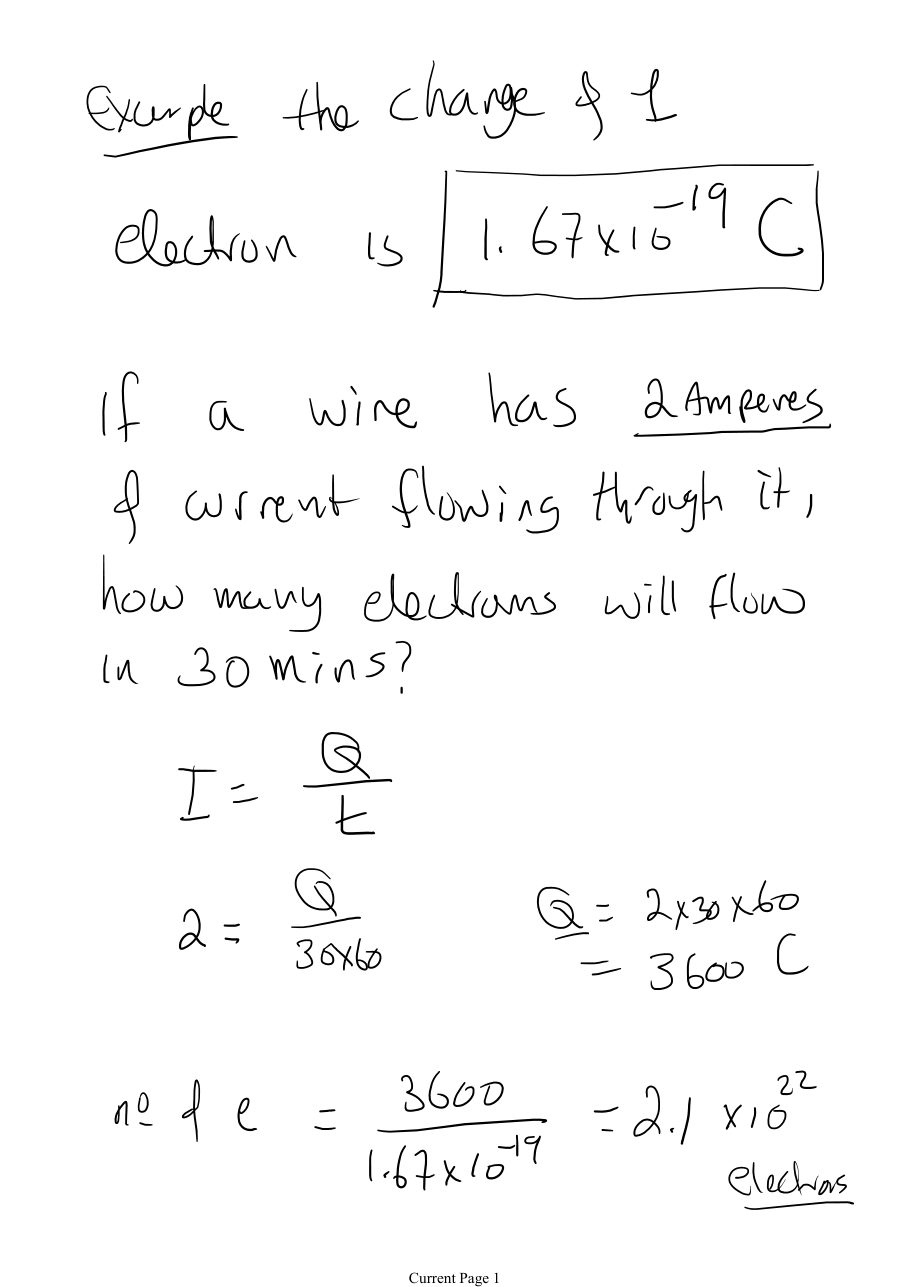 Example the charge of 1
electron is 1.67x10^-19 C
If a wire has 2 Amperes
of current flowing through it,
how many electrons will flow
in 30 mins?
I = Q/t
2 = Q/30x60
Q = 2x30x60
= 3600 C
nº of e = 3600/1.67x10^-19 = 2.1 x10^22
electrons
Current Page 1